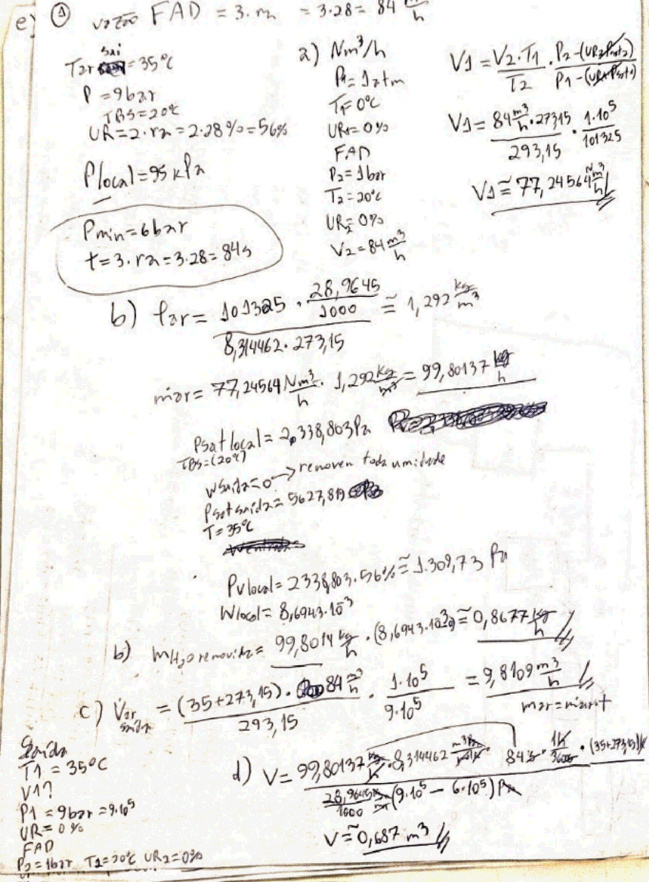 e) ① vazão FAD = 3.ra = 3.28 = 84 m³/h
Tar sai = 35°C
P = 9bar
TBS = 20°C
UR = 2.ra = 2.28% = 56%
Plocal = 95 kPa
Pmin = 6bar
t = 3.ra = 3.28 = 84s
a) Nm³/h
P1 = 1atm
T1 = 0°C
UR1 = 0%
FAD
P2 = 1bar
T2 = 20°C
UR2 = 0%
V2 = 84 m³/h
V1 = V2.T1/T2 . P2-(UR2.Psat2)/P1-(UR1.Psat1)
V1 = 84 m³/h.273,15/293,15 . 1.10⁵/101325
V1 ≅ 77,24564 Nm³/h
b) ρar = 101325 . 28,9645/1000 / 8,314462.273,15 ≅ 1,292 kg/m³
ṁar = 77,24564 Nm³/h . 1,292 kg/m³ = 99,80137 kg/h
Psat local = 2.338,803 Pa
TBS = (20°C)
Wsaida = 0 → removeu toda umidade
Psat saida = 5627,819
T = 35°C
Pvlocal = 2338,803.56% ≅ 1.309,73 Pa
Wlocal = 8,6943.10⁻³
b) mH₂O removida = 99,8014 kg/h . (8,6943.10⁻³) ≅ 0,8677 kg/h
c) V̇ar saida = (35+273,15).84 m³/h / 293,15 . 1.10⁵/9.10⁵ = 9,8109 m³/h
d) V = 99,80137 kg/h . 8,314462 m³Pa/molK . 84s . 1h/3600s . (35+273,15)K / 28,9645/1000 (9.10⁵ - 6.10⁵) Pa
V ≅ 0,687 m³
Saída
T1 = 35°C
V1?
P1 = 9bar = 9.10⁵
UR = 0%
FAD
P2 = 1bar T2 = 20°C UR2 = 0%